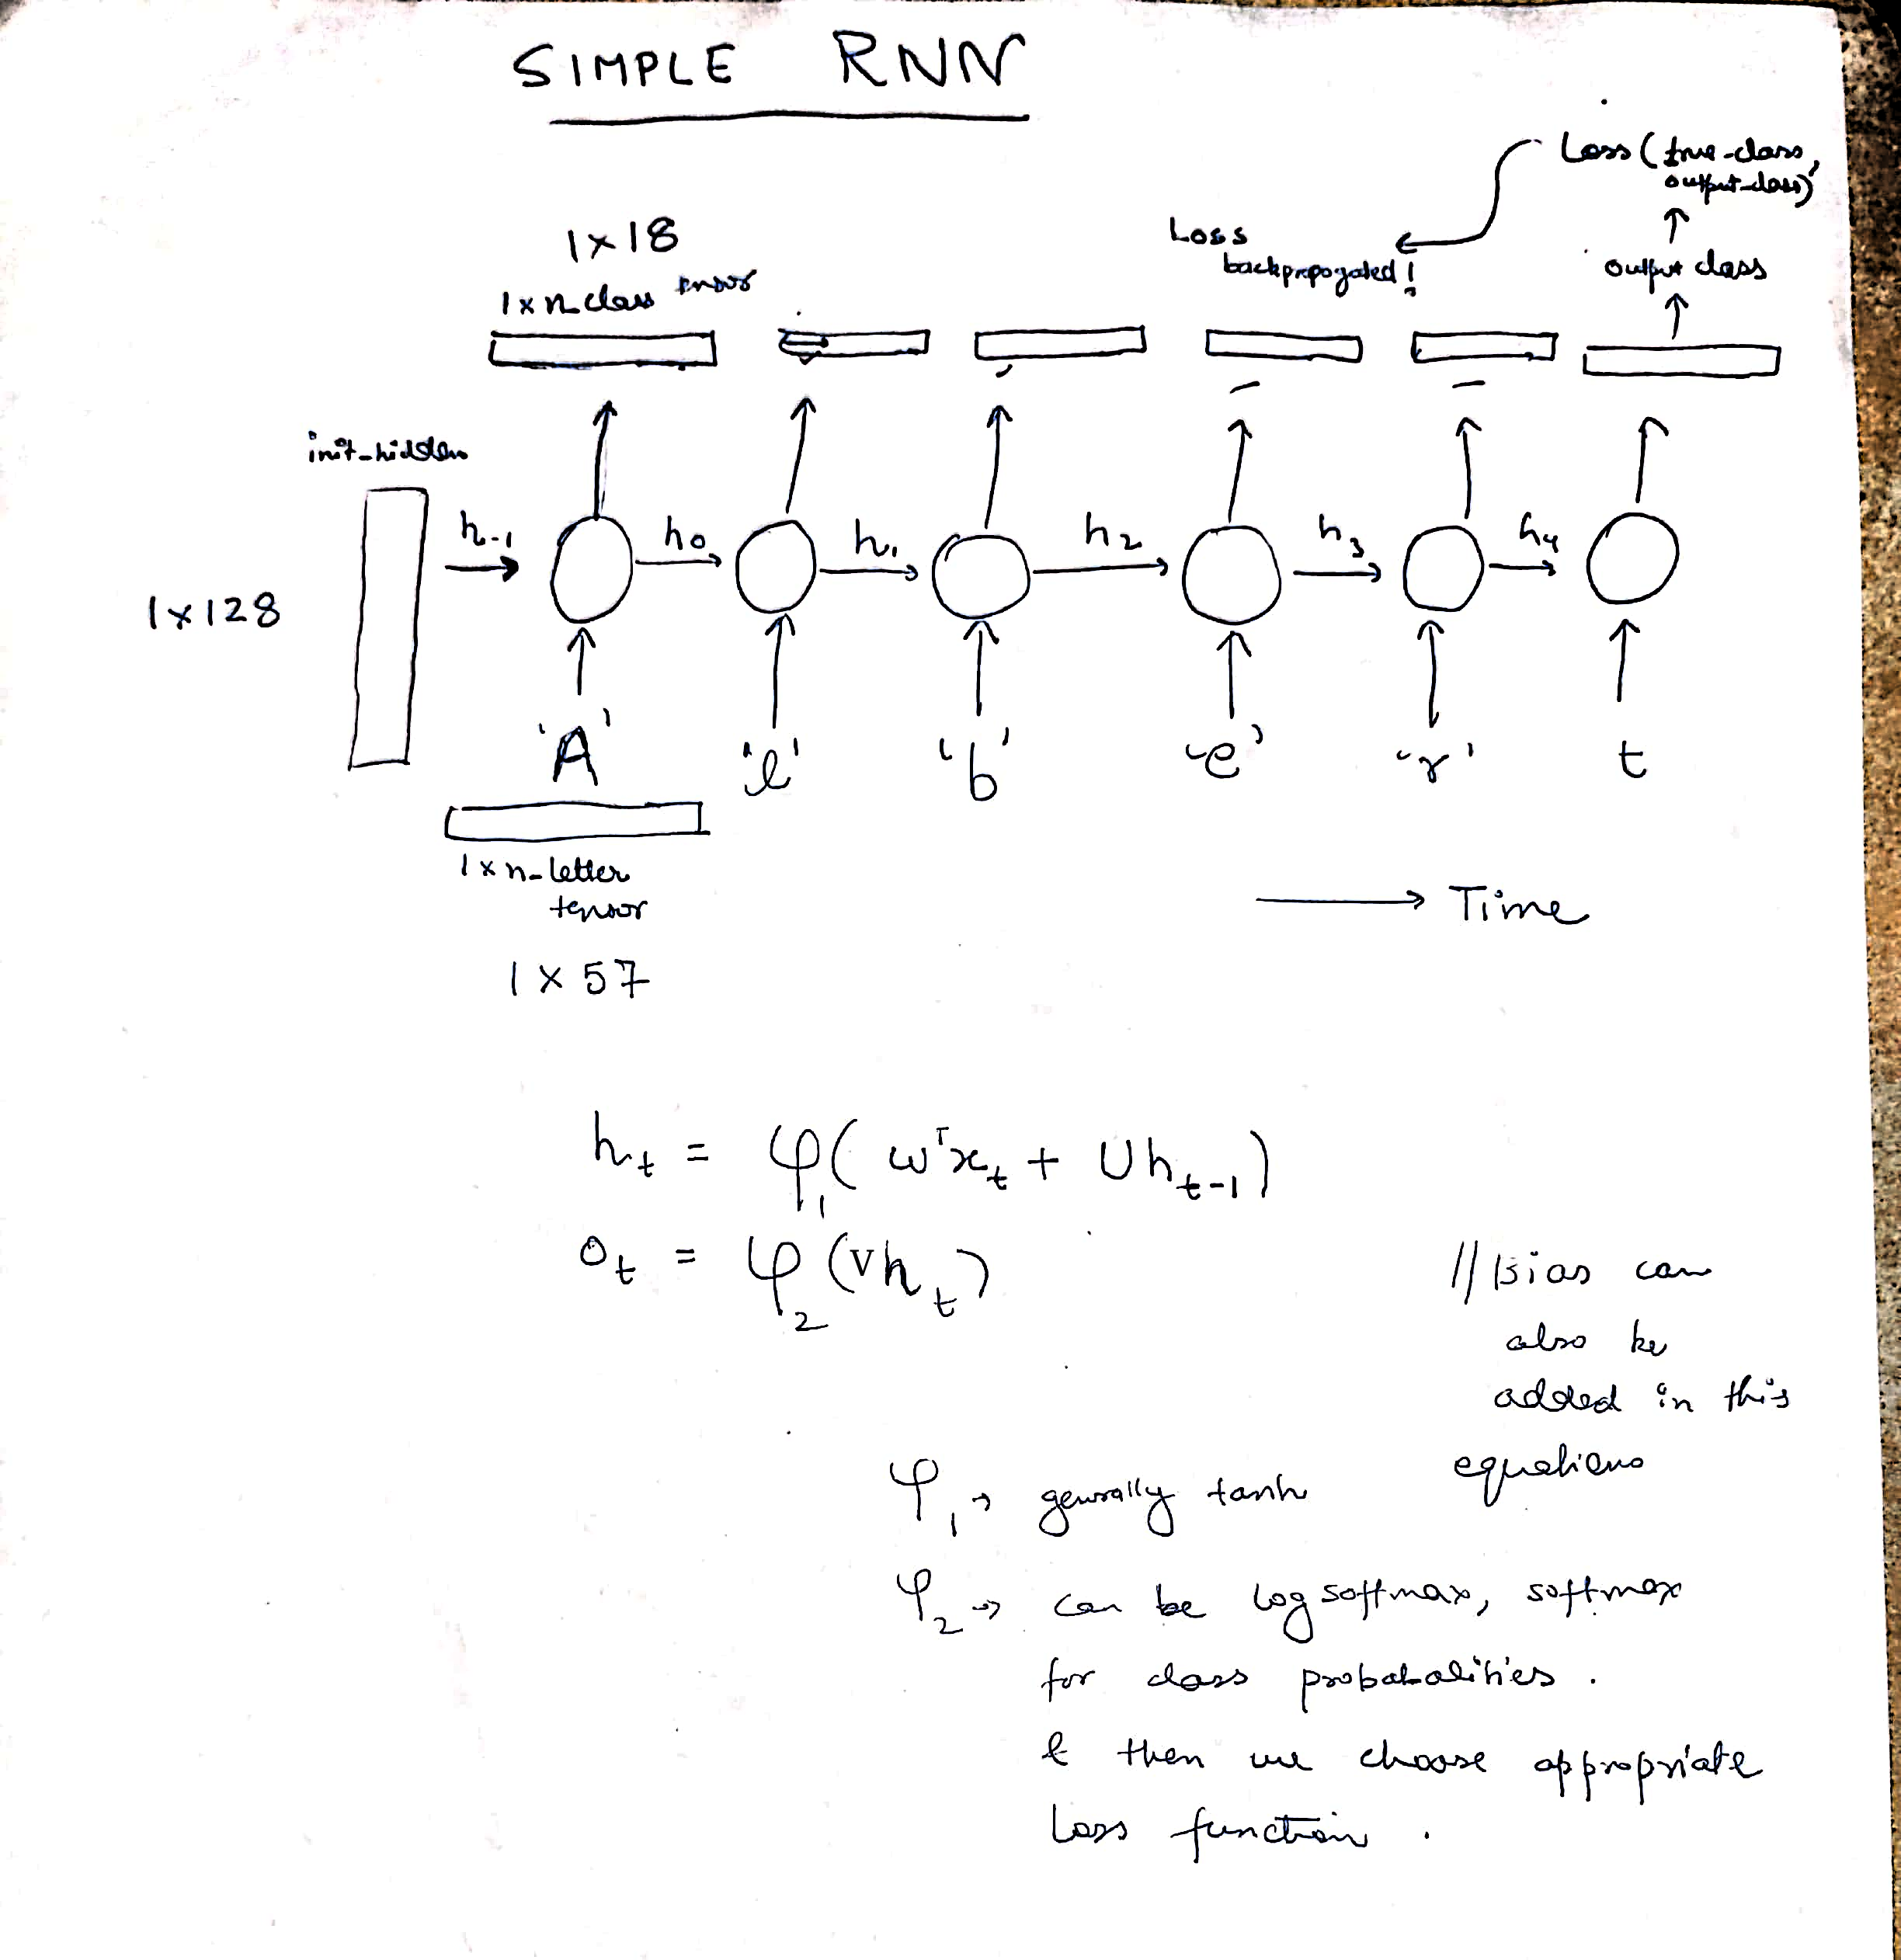 SIMPLE RNN
Loss (true-class,
output-class)
1×18
1×n_class tensor
Loss
backpropogated!
output class
init-hidden
h-1
h0
h1
h2
h3
h4
1×128
'A'
'l'
'b'
'e'
'r'
t
1×n-letter
tensor
1×57
→ Time
h_t = φ_1(w^T x_t + U h_{t-1})
o_t = φ_2(V h_t)
// Bias can
also be
added in this
equations
φ_1 → generally tanh
φ_2 → can be log softmax, softmax
for class probabalities.
& then we choose appropriate
loss function.